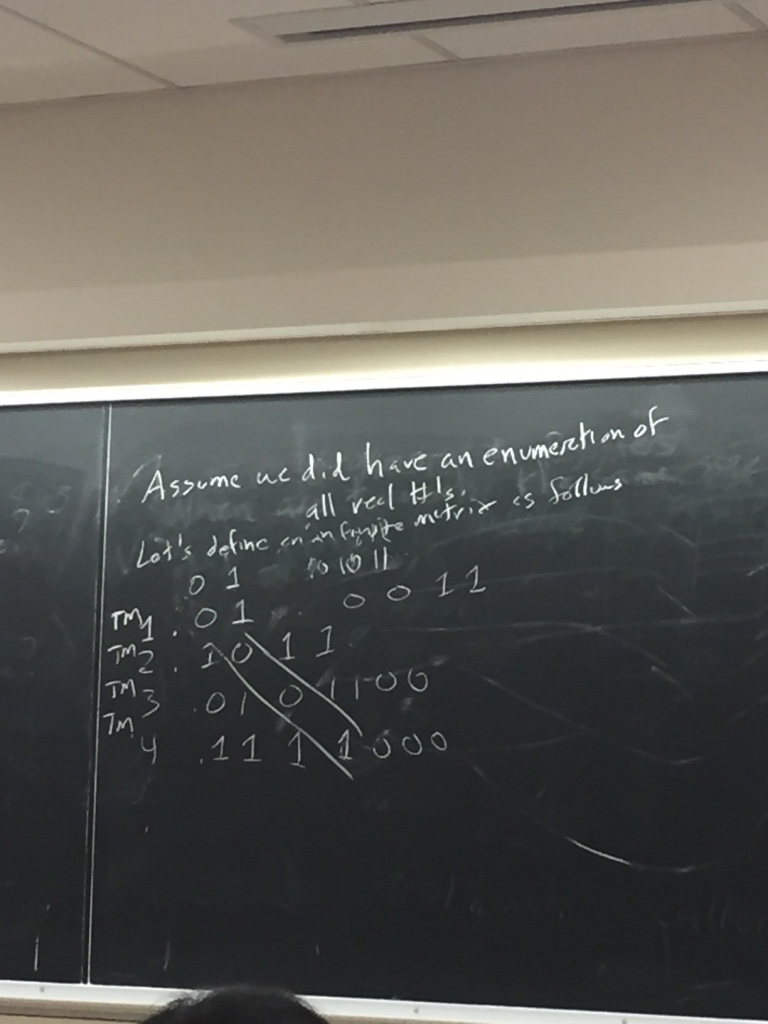 Assume we did have an enumeration of
all real #'s.
Let's define an infinite matrix as follows
0 1 10 11
TM1 . 0 1 . 0 0 1 1
TM2 . 1 0 1 1
TM3 . 0 1 0 1 1 0 0
TM4 . 1 1 1 1 0 0 0